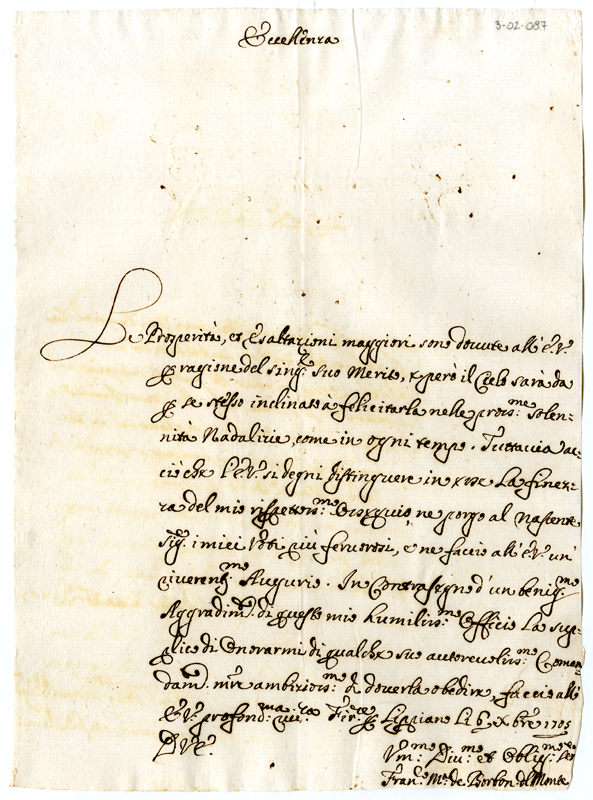 3-02-087
Eccellenza
Le Prosperità, et Esaltazioni maggiori sono douute all' E.V.
p ragione del sing.re suo Merito, e però il Cielo sarà da
p se stesso inclinato à felicitarla nelle pross.me Solen-
nità Nadalizie, come in ogni tempo. Tuttauia ac-
ciò che l'E.V. si degni distinguere in esse la finez-
za del mio rispettos.mo Ossequio, ne porgo al Nascente
Sig.re i miei Voti più feruorosi, e ne faccio all' E.V. un
riuerent.mo Augurio. In Contrasegno d'un benig.mo
Aggradim.to di questo mio humiliss.mo Officio la sup-
plico di Onorarmi di qualche suo autoreuoliss.mo Coman-
dam.to mentre ambizios.mo di douerla obedire, faccio all'
E.V. profond.ma riu.za p Lippiano Li 6 Xbre 1705
D V.E.
Vm.mo Diu.mo et Oblig.mo Ser.re
Fran.co M.a de Borbon del Monte